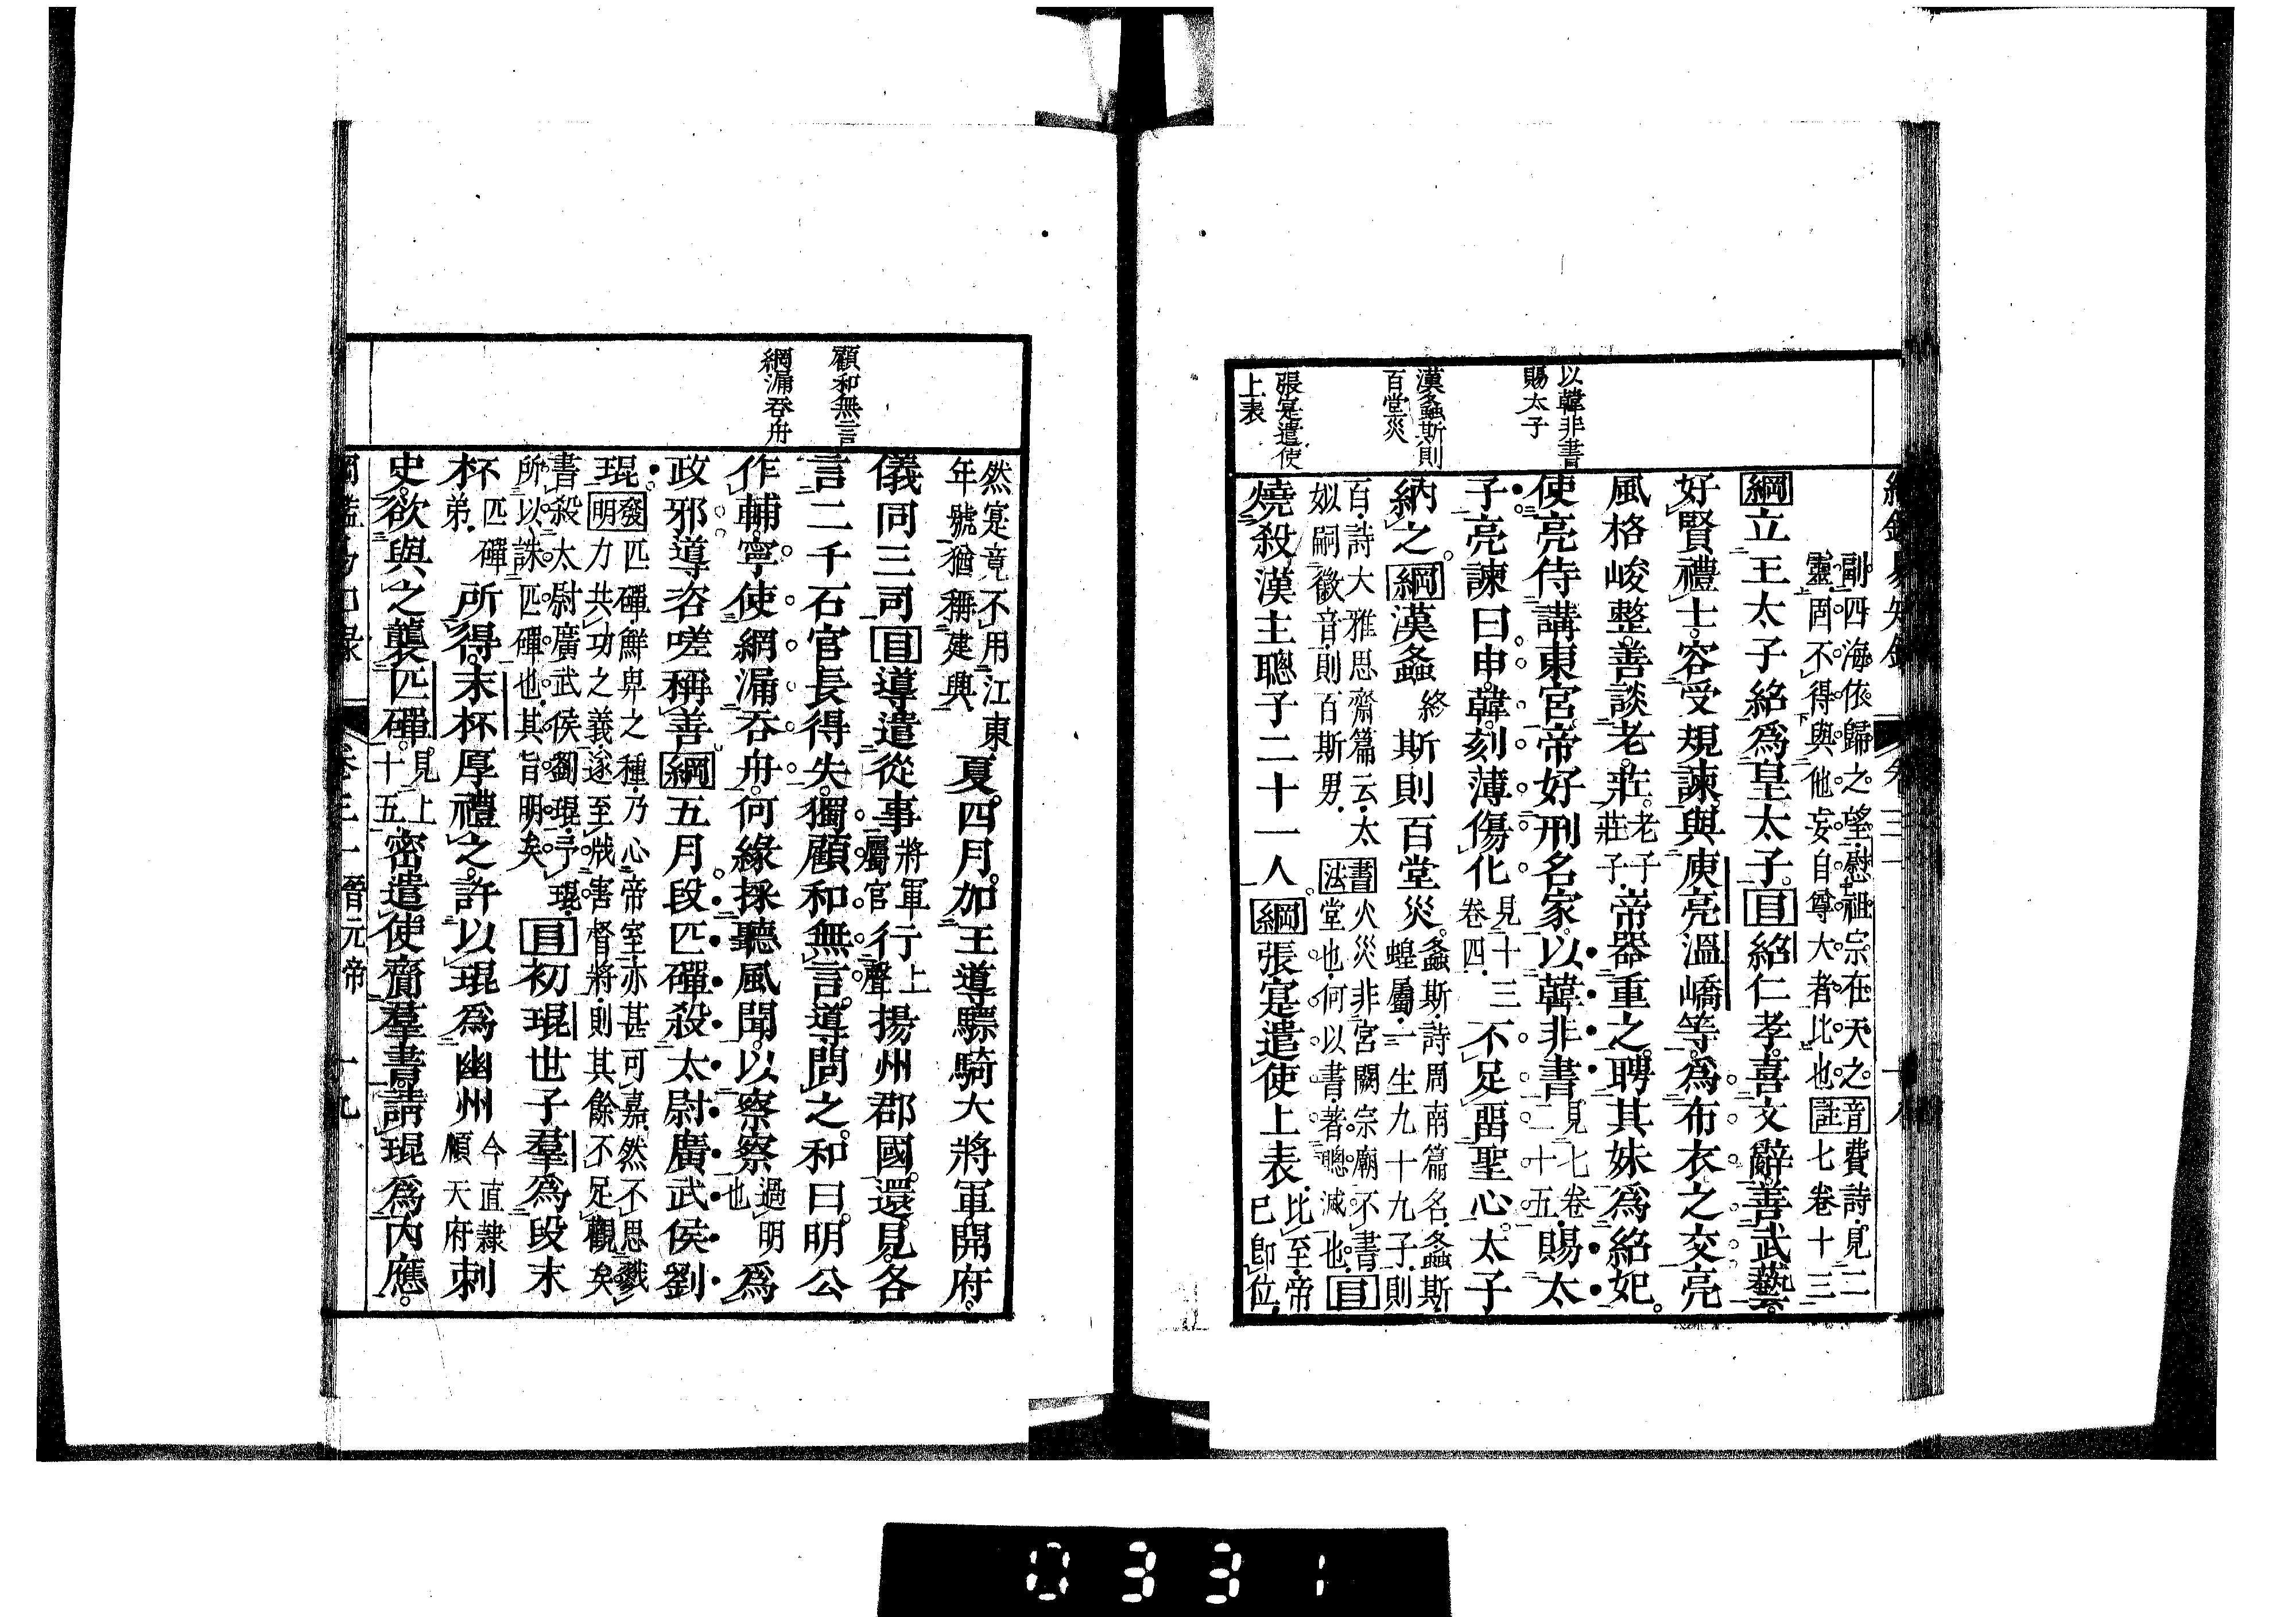 以韓非書
賜太子
漢螽斯則
百堂災
張寔遣使
上表
副四海依歸之望慰祖宗在天之
靈固不得與他妄自尊大者比也
音註
費詩見二
七卷十三
綱立王太子紹爲皇太子目紹仁孝喜文辭善武藝
好賢禮士容受規諫與庾亮溫嶠等爲布衣之交亮
風格峻整善談老莊老子莊子帝器重之聘其妹爲紹妃
使亮侍講東宮帝好刑名家以韓非書見七卷二十五賜太
子亮諫曰申韓刻薄傷化見十三卷四不足畱聖心太子
納之綱漢螽終斯則百堂災螽斯詩周南篇名螽斯蝗屬一生九十九子則
百詩大雅思齊篇云太姒嗣徽音則百斯男書法火災非宮闕宗廟不書堂也何以書著聰滅也目
燒殺漢主聰子二十一人綱張寔遣使上表比至帝已卽位
顧和無言
網漏吞舟
然寔竟不用江東年號猶稱建興夏四月加王導驃騎大將軍開府
儀同三司目導遣從事將軍屬官行上聲揚州郡國還見各
言二千石官長得失獨顧和無言導問之和曰明公
作輔寧使網漏吞舟何緣採聽風聞以察察過明也爲
政邪導咨嗟稱善綱五月段匹磾殺太尉廣武侯劉
琨發明匹磾鮮卑之種乃心帝室亦甚可嘉然不思戮力共功之義遂至戕害督將則其餘不足觀矣
書殺太尉廣武侯劉琨予琨所以誅匹磾也其旨明矣目初琨世子羣爲段末
杯匹磾弟所得末杯厚禮之許以琨爲幽州今直隸順天府刺
史欲與之襲匹磾見上十五密遣使齎羣書請琨爲內應
卷三一 晉元帝 十九